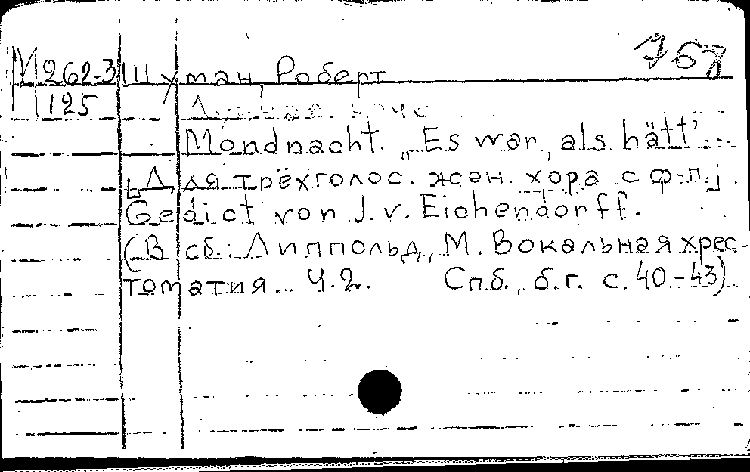 М 262-3 Шуман, Роберт 767
125 Лунная ночь
Mondnacht. „Es war, als hätt"...
[Для трёхголос. жен. хора с ф-п.]
Gedict von J. v. Eichendorff.
(В сб.: Липпольд, М. Вокальная хрес-
томатия... Ч. 2. Спб., б.г. с. 40-43)